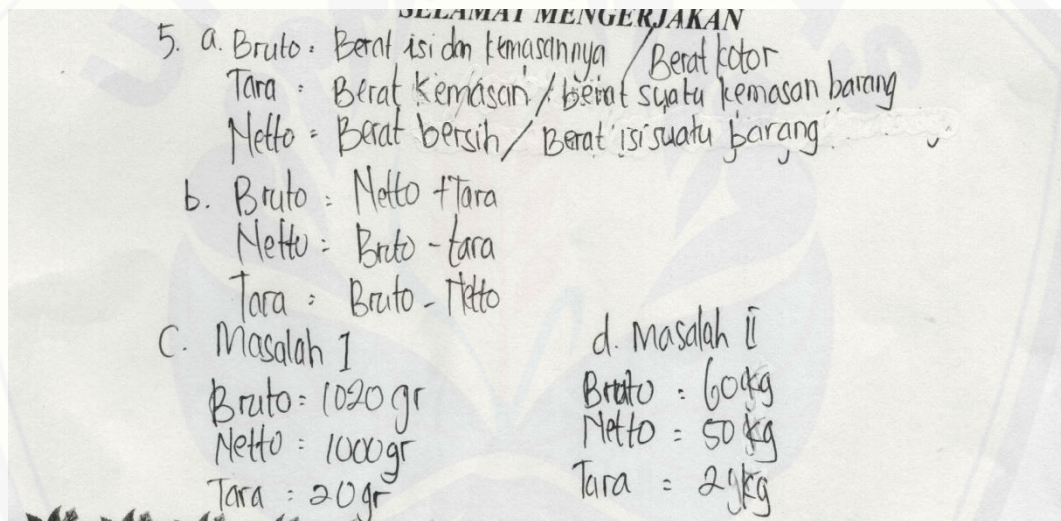 SELAMAT MENGERJAKAN
5. a. Bruto : Berat isi dan kemasannya / Berat kotor
Tara : Berat kemasan / berat suatu kemasan barang
Netto = Berat bersih / Berat isi suatu barang
b. Bruto : Netto + Tara
Netto : Bruto - tara
Tara : Bruto - Netto
C. Masalah I
Bruto : 1020 gr
Netto : 1000 gr
Tara : 20 gr
d. Masalah II
Bruto : 60 kg
Netto = 50 kg
Tara : kg